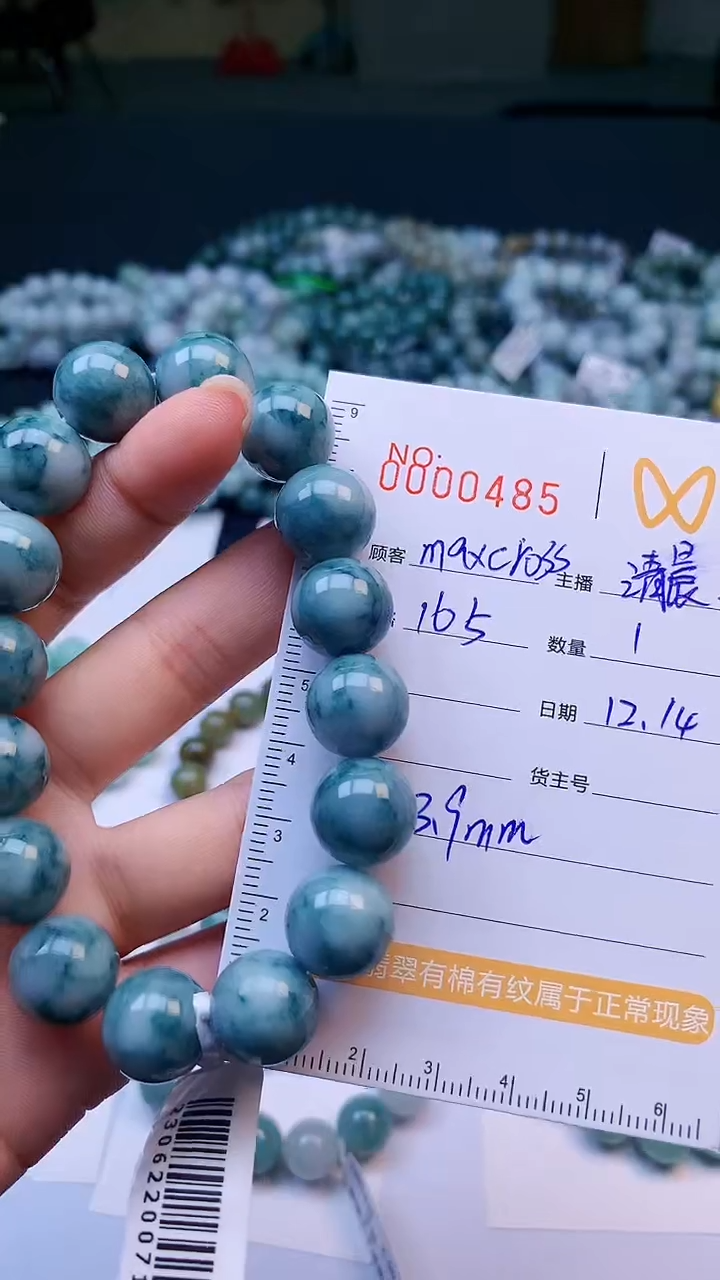 NO:
0000485
顾客 maxcross 主播 清晨
165 数量 1
日期 12.14
货主号
3.9mm
翡翠有棉有纹属于正常现象
9
5
4
3
2
2 3 4 5 6
230622007